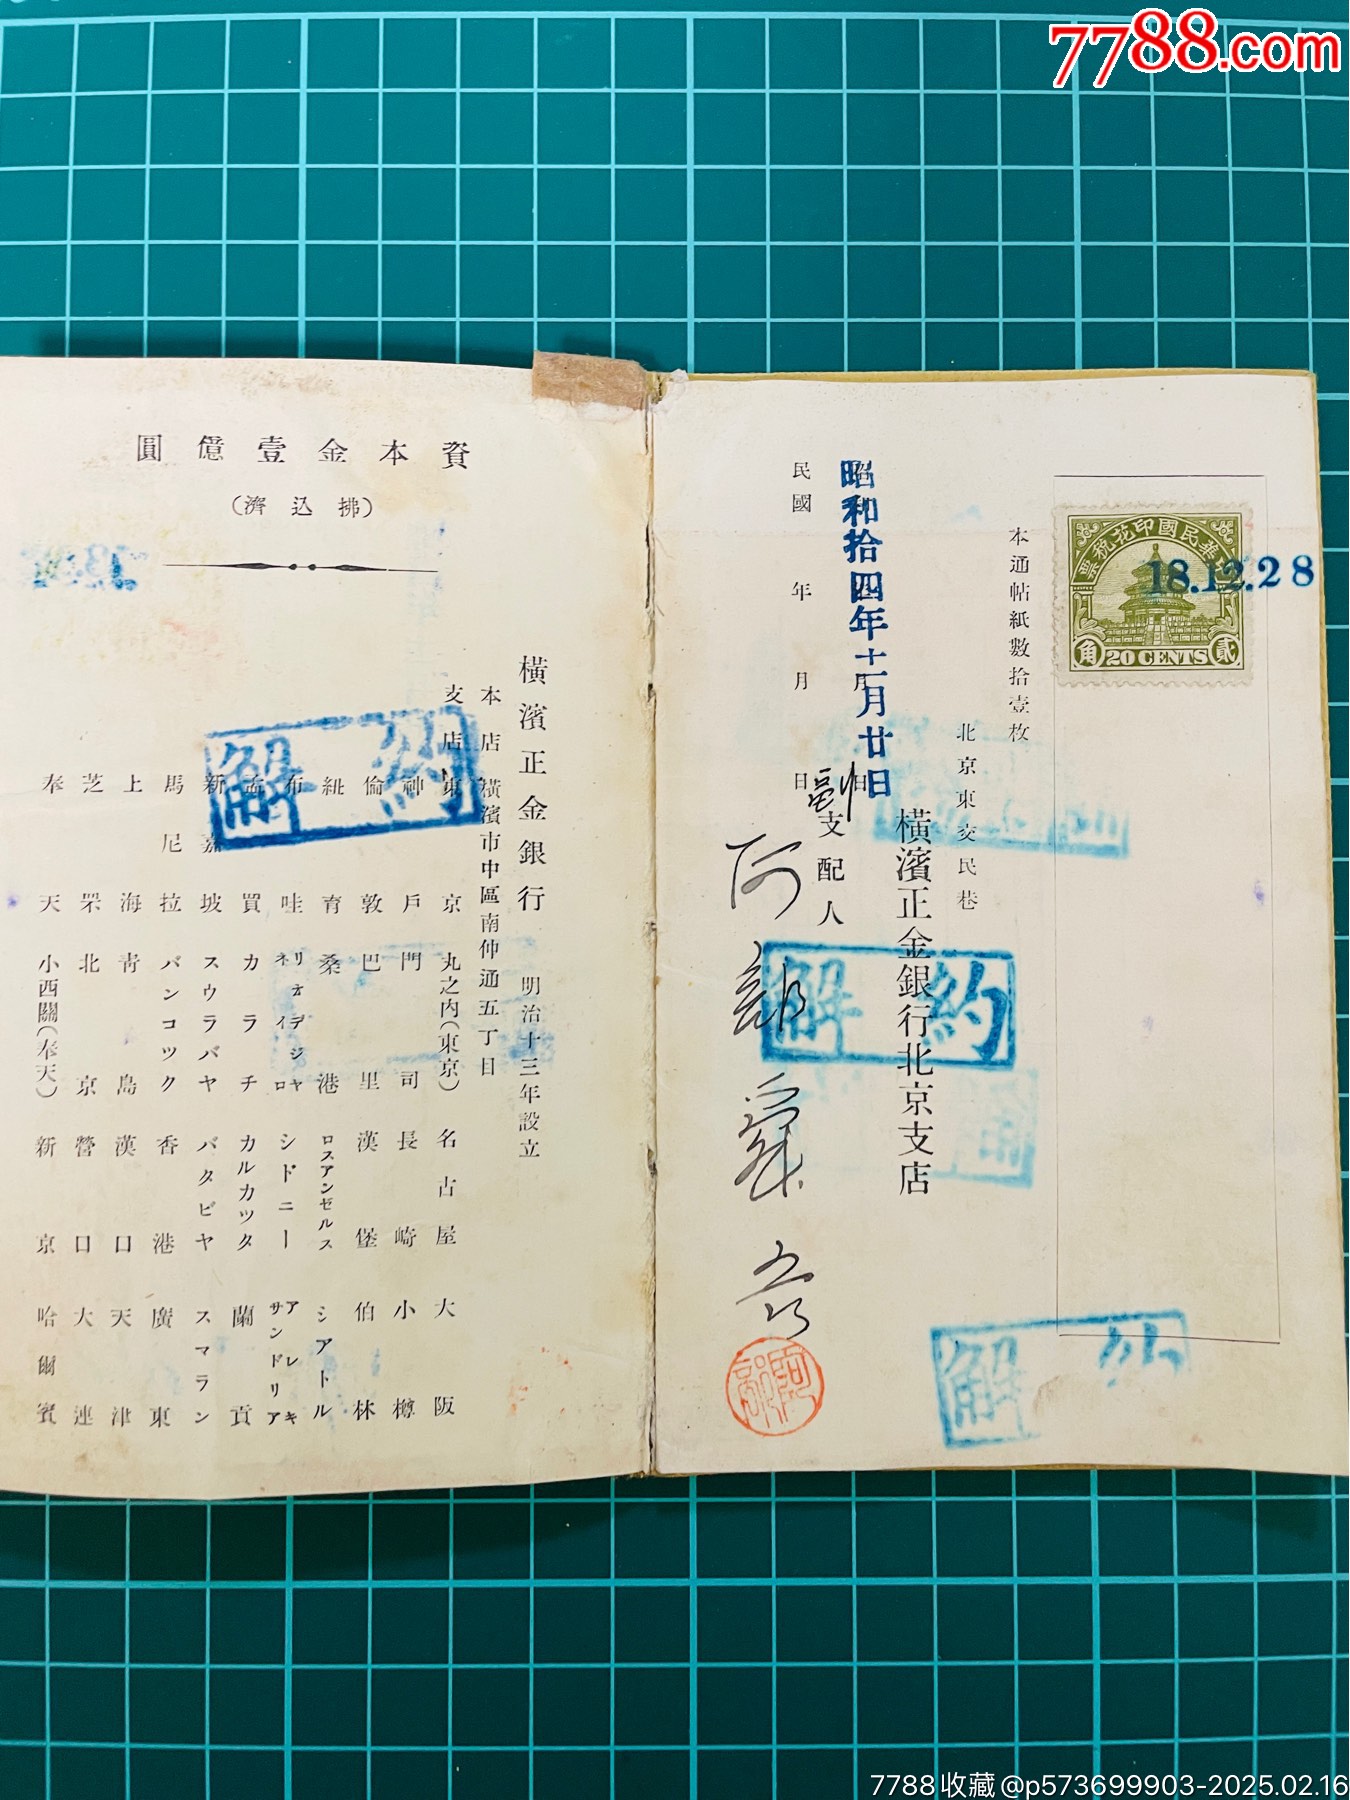 7788.com
中華民國印花税票
角 20 CENTS 貳
18.12.28
本通帖紙數拾壹枚
北京東交民巷
橫濱正金銀行北京支店
昭和拾四年十一月廿日
民國 年 月 日
副支配人
解約
解約
資本金壹億圓
(拂込濟)
橫濱正金銀行 明治十三年設立
本店 橫濱市中區南仲通五丁目
支店 東京 丸之內(東京) 名古屋 大阪
神戶 門司 長崎 小樽
倫敦 巴里 漢堡 伯林
紐育 桑港 ロスアンゼルス シアトル
布哇 リオデジャネイロ シドニー アレキサンドリア
孟買 カラチ カルカツタ 蘭貢
新嘉坡 スウラバヤ バタビヤ スマラン
馬尼拉 バンコツク 香港 廣東
上海 靑島 漢口 天津
芝罘 北京 營口 大連
奉天 小西關(奉天) 新京 哈爾賓
解約
7788收藏@p573699903-2025.02.16